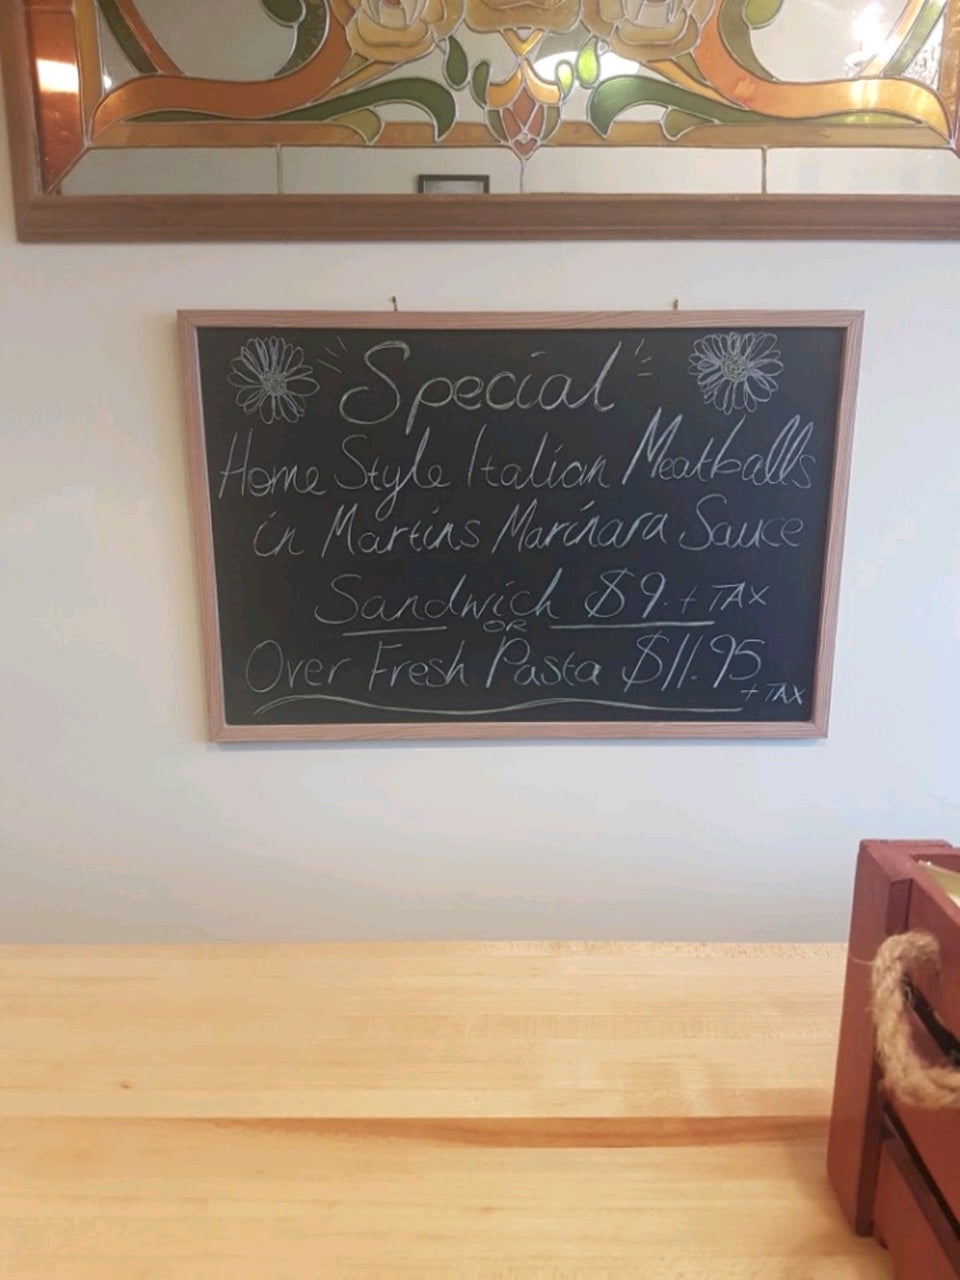 Special
Home Style Italian Meatballs
in Martins Marinara Sauce
Sandwich $9. + TAX
OR
Over Fresh Pasta $11.95
+ TAX